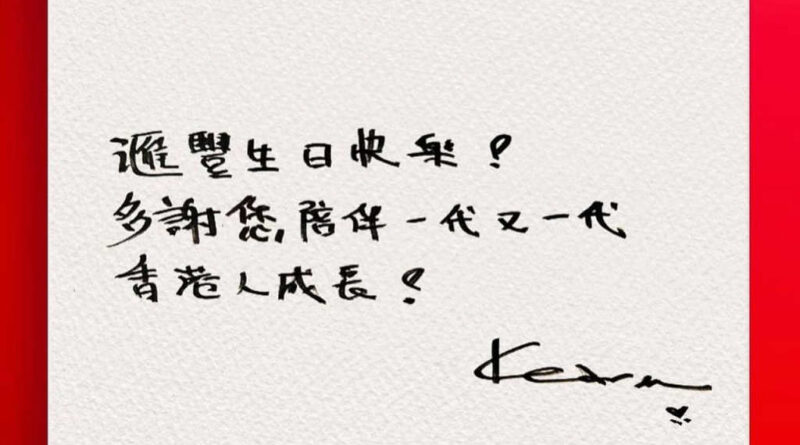 滙豐生日快樂！
多謝您,陪伴一代又一代
香港人成長！